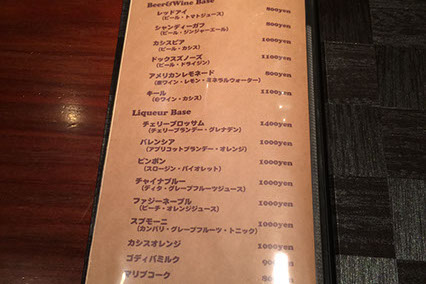 Beer&Wine Base
レッドアイ 800yen
(ビール・トマトジュース)
シャンディーガフ 800yen
(ビール・ジンジャーエール)
カシスビア 1000yen
(ビール・カシス)
ドックスズノーズ 1100yen
(ビール・ドライジン)
アメリカンレモネード 800yen
(赤ワイン・レモン・ミネラルウォーター)
キール 1100yen
(白ワイン・カシス)
Liqueur Base
チェリーブロッサム 1400yen
(チェリーブランデー・グレナデン)
バレンシア 1000yen
(アプリコットブランデー・オレンジ)
ピンポン 1000yen
(スロージン・バイオレット)
チャイナブルー 1000yen
(ディタ・グレープフルーツジュース)
ファジーネーブル 1000yen
(ピーチ・オレンジジュース)
スプモーニ 1000yen
(カンパリ・グレープフルーツ・トニック)
カシスオレンジ 1000yen
ゴディバミルク 900yen
マリブコーク